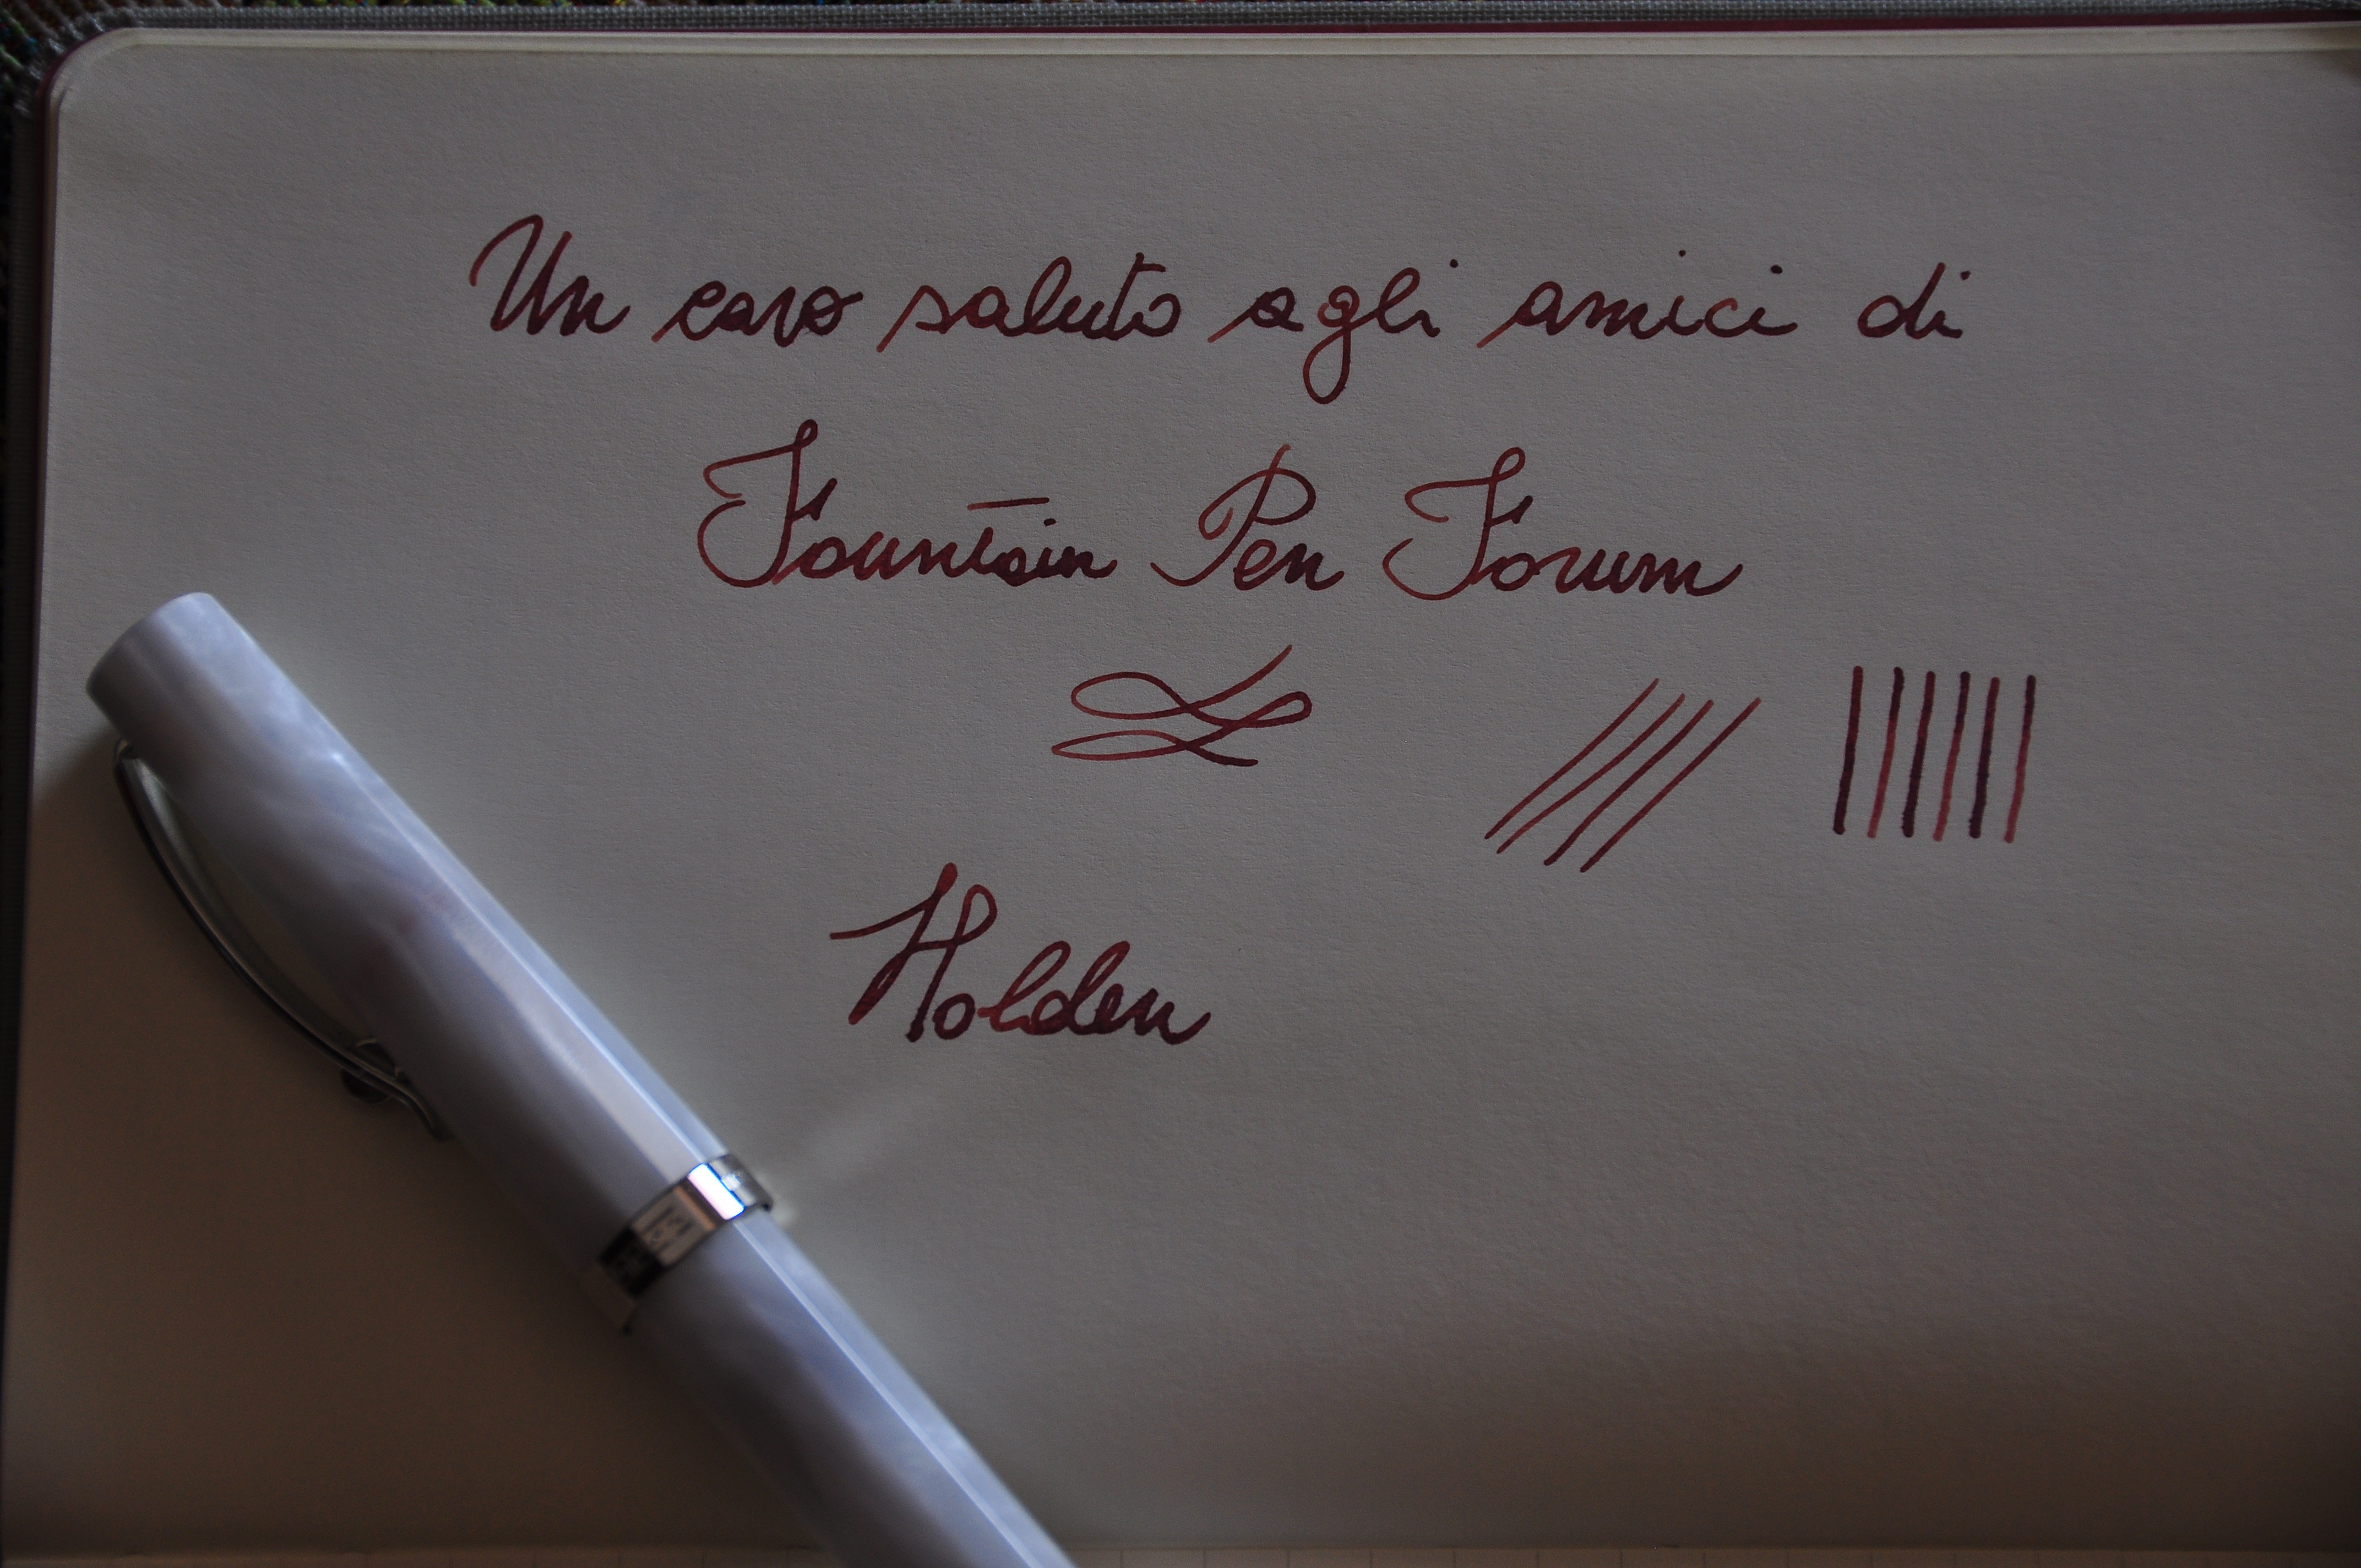 Un caro saluto agli amici di
Fountain Pen Forum
Holden